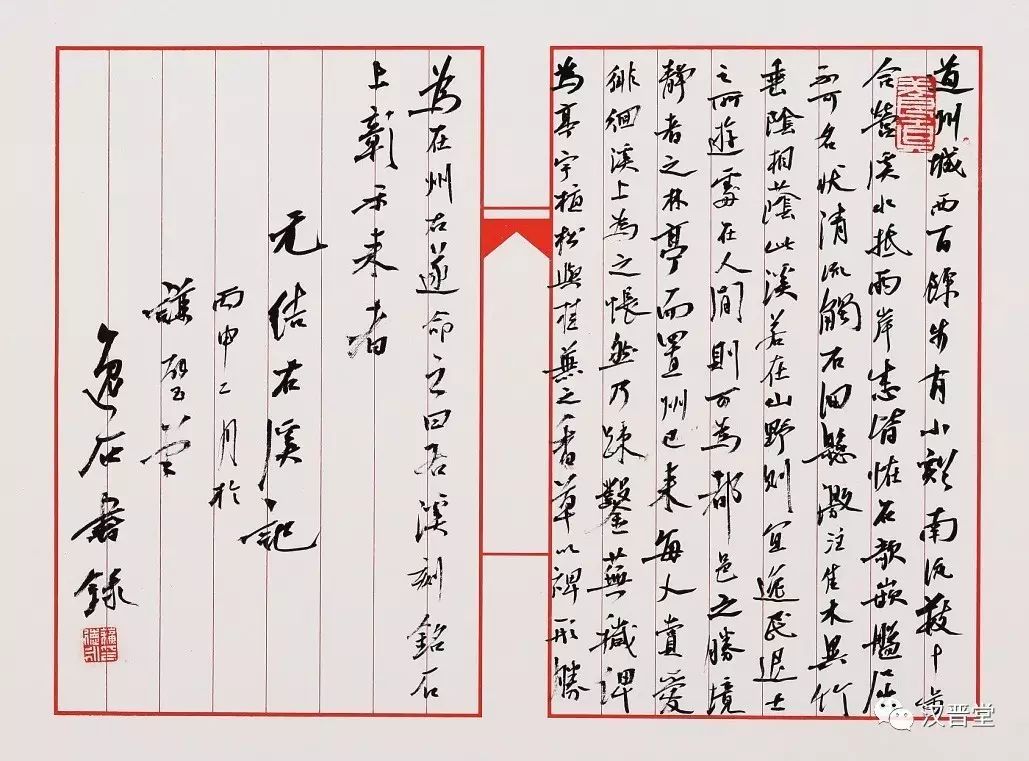 道州城西百餘步有小谿南流數十步
合營溪水抵兩岸悉皆怪石欹嵌盤屈
不可名狀清流觸石洄懸激注佳木異竹
垂陰相蔭此溪若在山野則宜逸民退士
之所遊處在人間則可為都邑之勝境
靜者之林亭而置州已来每人賞愛
徘徊溪上為之悵然乃疎鑿蕪穢俾
為亭宇植松與桂兼之香草以裨形勝
為在州右遂命之曰右溪刻銘石
上彰示来者
元結右溪記
丙申二月於
逸石書録
汉晋堂